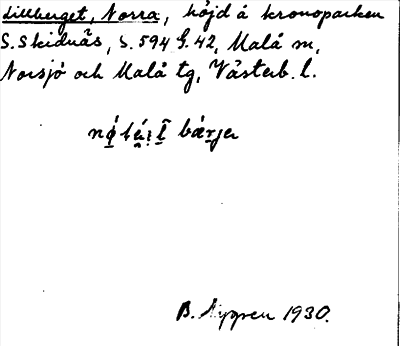 Lillberget, Norra, höjd å kronoparken
S. Skidnäs, S. 594 G. 42, Malå sn,
Norsjö och Malå tg, Västerb. l.
B. Nygren 1930.